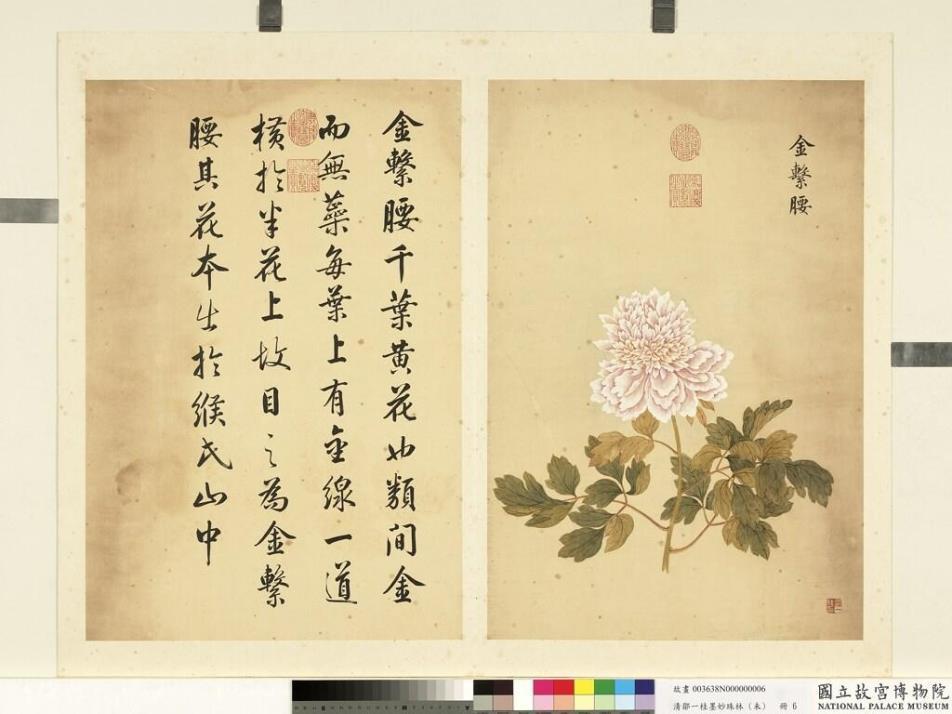 金繫腰
金繫腰千葉黃花也類間金
而無蘂每葉上有金線一道
橫於半花上故目之為金繫
腰其花本出於緱氏山中
故畫 003638N000000006
清鄒一桂墨妙珠林（未） 冊 6
國立故宮博物院
NATIONAL PALACE MUSEUM